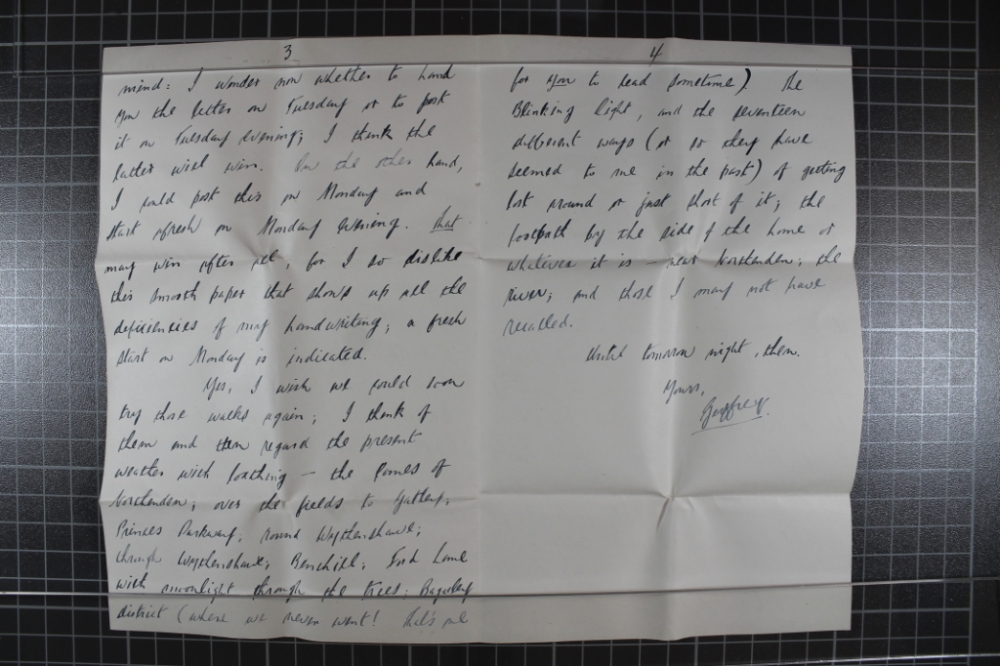 3
mind: I wonder now whether to hand
you the letter on Tuesday or to post
it on Tuesday evening; I think the
latter will win. On the other hand,
I could post this on Monday and
start afresh on Monday evening. that
may win after all, for I so dislike
this smooth paper that shows up all the
deficiencies of my handwriting; a fresh
start on Monday is indicated.
Yes, I wish we could soon
try those walks again; I think of
them and then regard the present
weather with loathing — the lanes of
Northenden; over the fields to Gatley;
Princes Parkway; round Wythenshawe;
through Wythenshawe; Benchill; Ford Lane
with moonlight through the trees; Baguley
district (where we never went! that's all
4
for you to read sometime). The
Blinking light, and the seventeen
different ways (or so they have
seemed to me in the past) of getting
lost around or just short of it; the
footpath by the side of the home or
whatever it is — near Northenden; the
river; and those I may not have
recalled.
Until tomorrow night, then.
Yours,
Geoffrey.